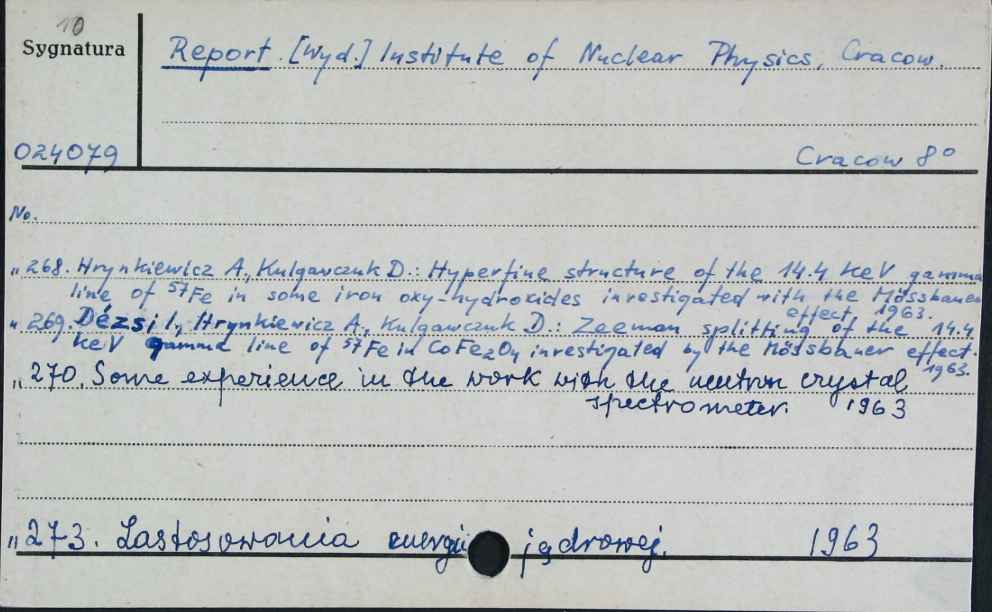 10
Sygnatura
Report [Wyd.] Institute of Nuclear Physics, Cracow.
024079
Cracow 8°
No.
" 268. Hrynkiewicz A., Kulgawczuk D.: Hyperfine structure of the 14.4 KeV gamma
line of ⁵⁷Fe in some iron oxy-hydroxides investigated with the Mössbauer
effect, 1963.
" 269. Dézsi I., Hrynkiewicz A., Kulgawczuk D.: Zeeman splitting of the 14.4
KeV gamma line of ⁵⁷Fe in CoFe₂O₄ investigated by the Mössbauer effect.
1963.
" 270. Some experience in the work with the neutron crystal
spectrometer. 1963
" 273. Zastosowania energii jądrowej. 1963